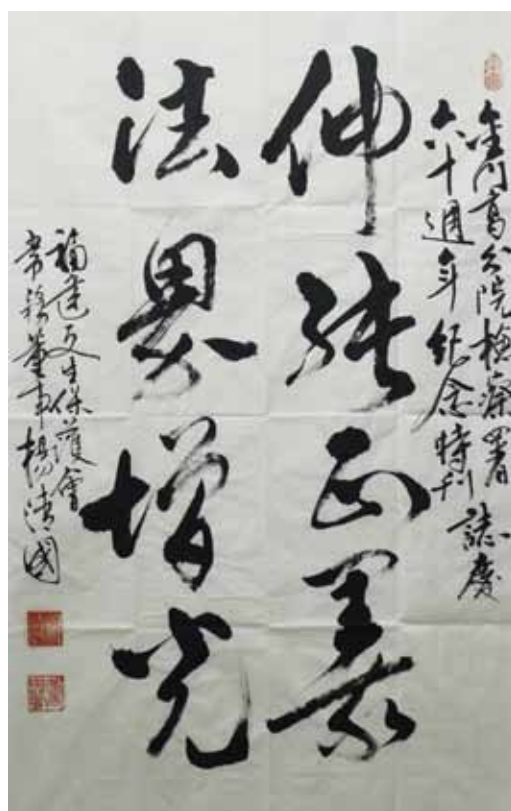 金門高分院檢察署
六十週年紀念特刊誌慶
伸張正義
法界增光
福建更生保護會
常務董事楊清國